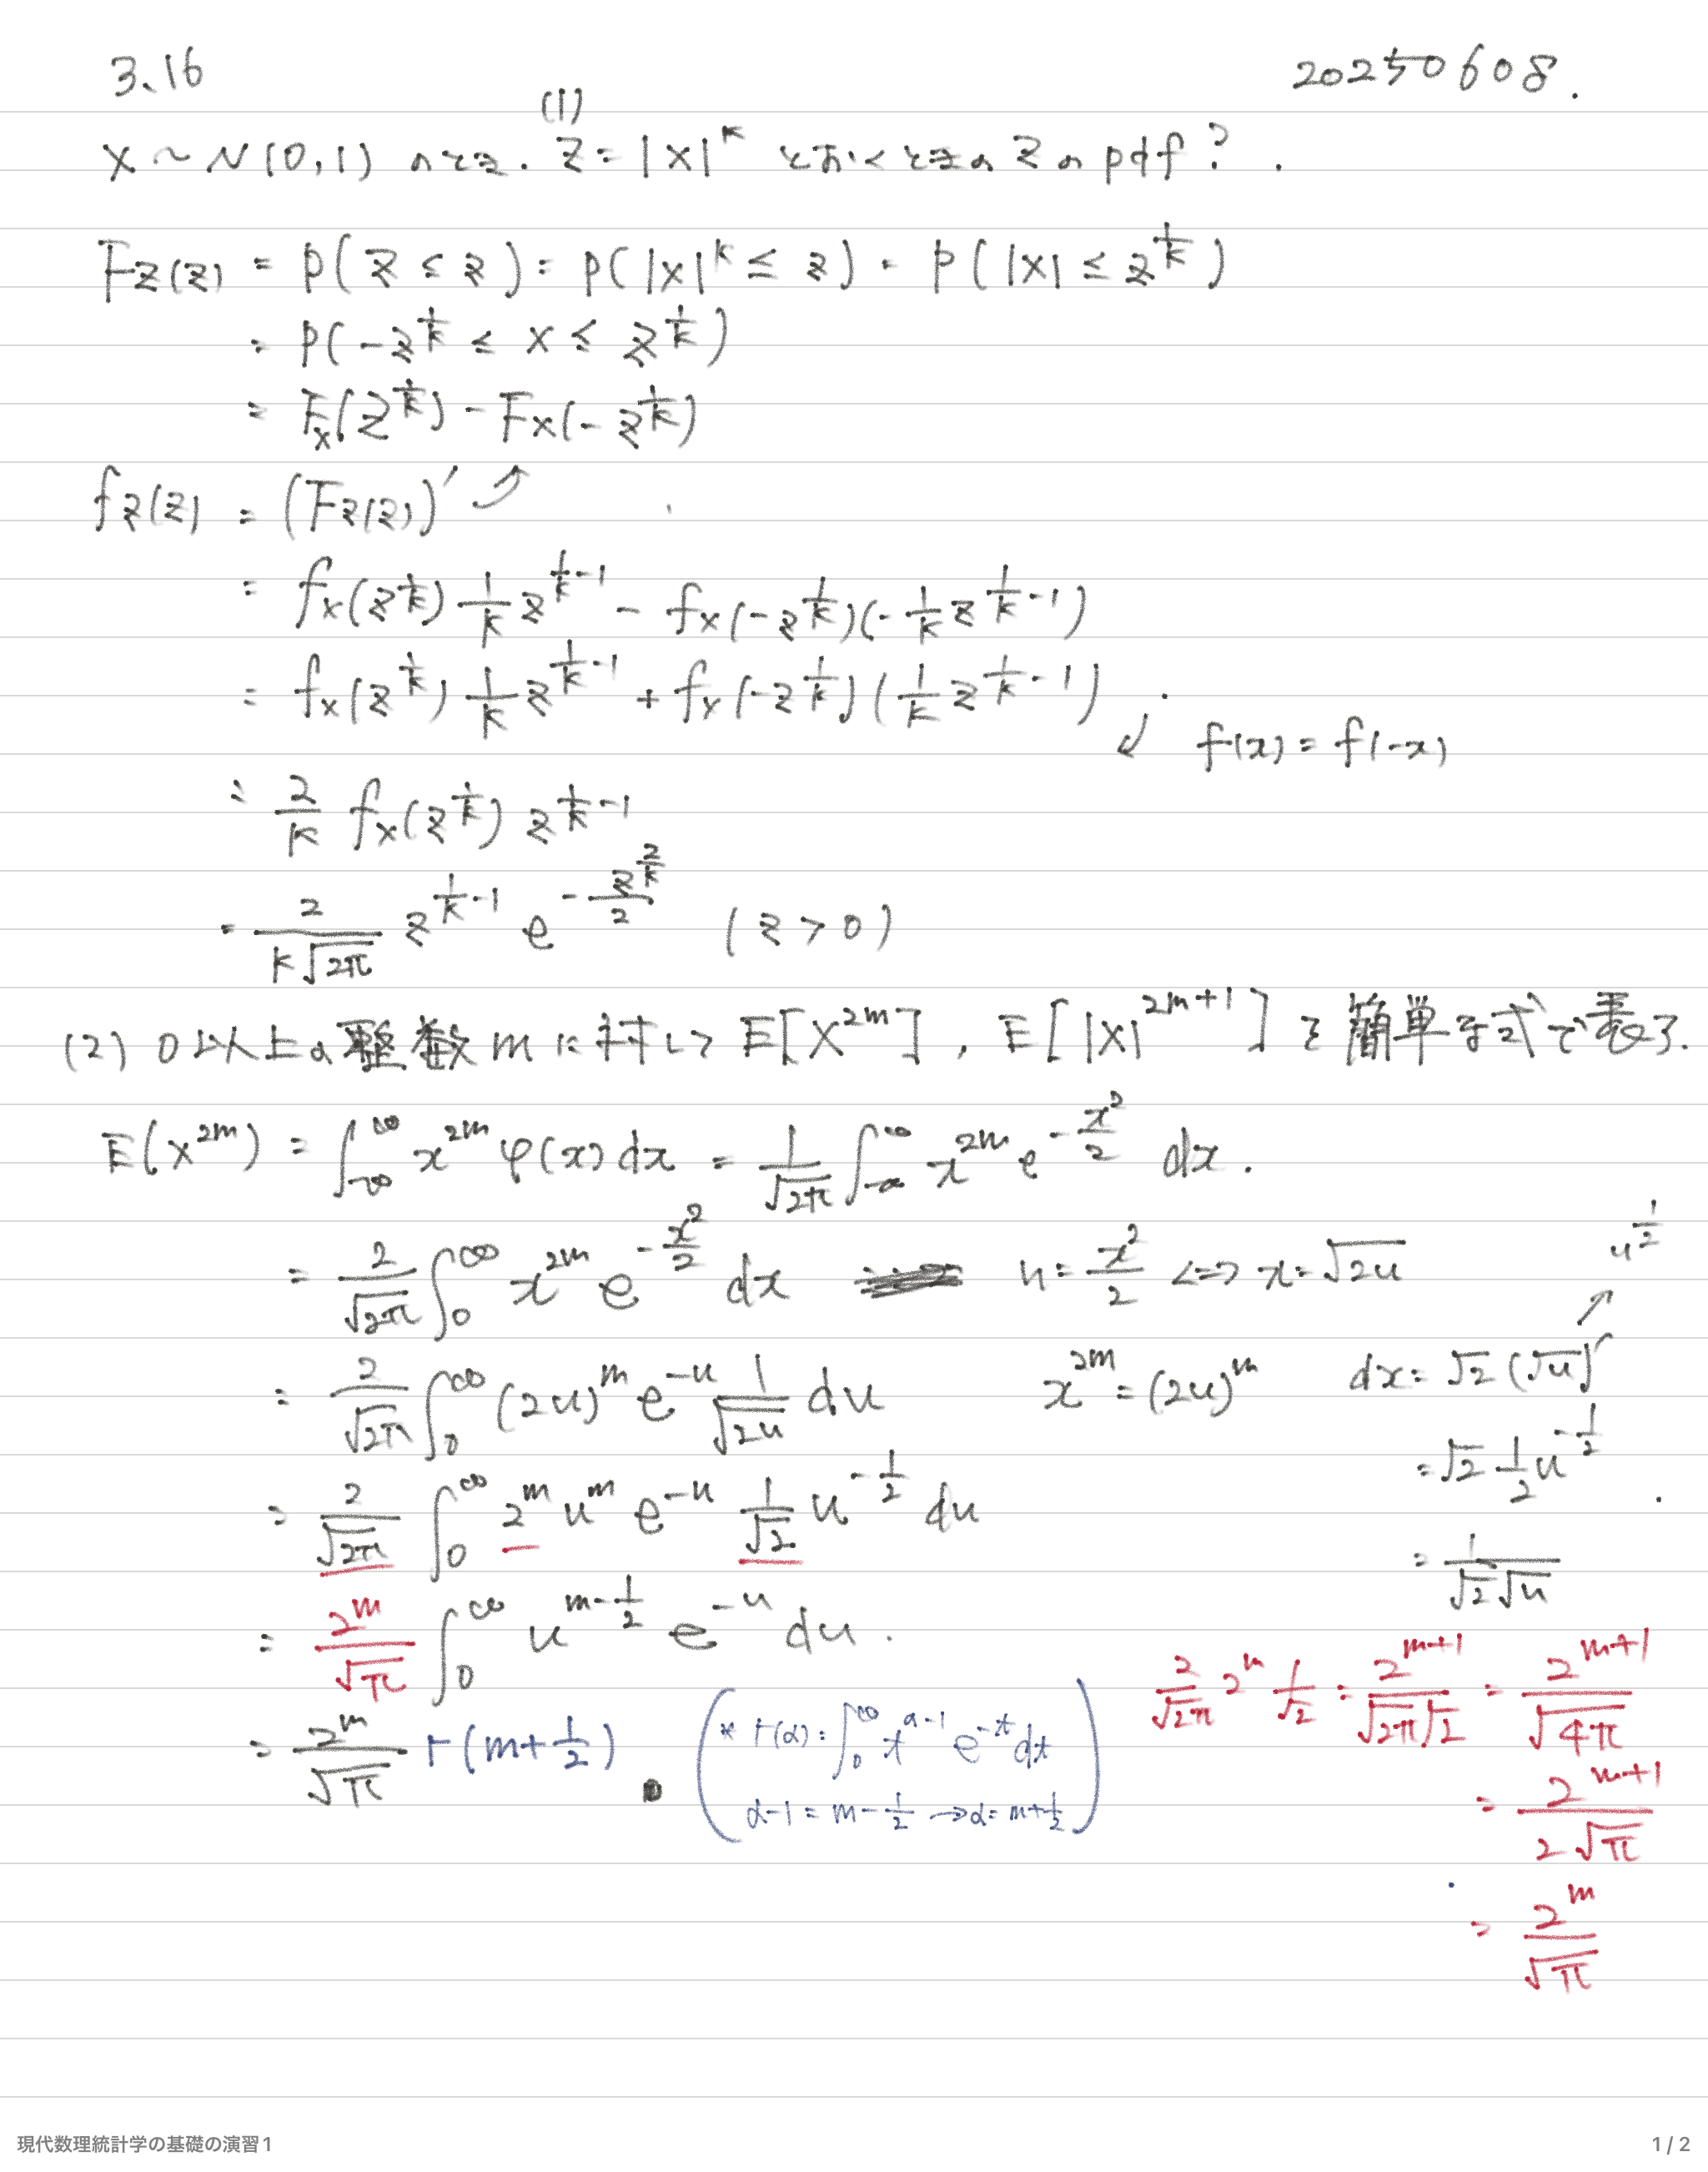 3.16
20250608.
(1)
X ~ N(0,1) のとき. Z = |X|^k とおくときの Z の pdf? .
F_Z(z) = P(Z ≤ z) = P(|X|^k ≤ z) = P(|X| ≤ z^{1/k})
= P(-z^{1/k} ≤ X ≤ z^{1/k})
= F_X(z^{1/k}) - F_X(-z^{1/k})
f_Z(z) = (F_Z(z))' ⤴
= f_X(z^{1/k}) 1/k z^{1/k - 1} - f_X(-z^{1/k})(-1/k z^{1/k - 1})
= f_X(z^{1/k}) 1/k z^{1/k - 1} + f_X(-z^{1/k})(1/k z^{1/k - 1}) .
↙ f(x) = f(-x)
= 2/k f_X(z^{1/k}) z^{1/k - 1}
= 2/(k√(2π)) z^{1/k - 1} e^{-z^{2/k}/2} (z > 0)
(2) 0以上の整数 m に対して E[X^{2m}], E[|X|^{2m+1}] を簡単な式で表す.
E(X^{2m}) = ∫_{-∞}^{∞} x^{2m} φ(x) dx = 1/√(2π) ∫_{-∞}^{∞} x^{2m} e^{-x²/2} dx .
= 2/√(2π) ∫_0^∞ x^{2m} e^{-x²/2} dx u = x²/2 <=> x = √(2u) u^{1/2}
= 2/√(2π) ∫_0^∞ (2u)^m e^{-u} 1/√(2u) du x^{2m} = (2u)^m dx = √2 (√u)' ↗
= √2 1/2 u^{-1/2} .
= 2/√(2π) ∫_0^∞ 2^m u^m e^{-u} 1/√2 u^{-1/2} du
= 1/(√2 √u)
= 2^m/√π ∫_0^∞ u^{m-1/2} e^{-u} du .
2/√(2π) 2^m 1/√2 = 2^{m+1}/(√(2π)√2) = 2^{m+1}/√(4π)
= 2^m/√π Γ(m+1/2) . (* Γ(α) = ∫_0^∞ t^{α-1} e^{-t} dt
α-1 = m - 1/2 → α = m+1/2)
= 2^{m+1}/(2√π)
= 2^m/√π
現代数理統計学の基礎の演習1
1 / 2